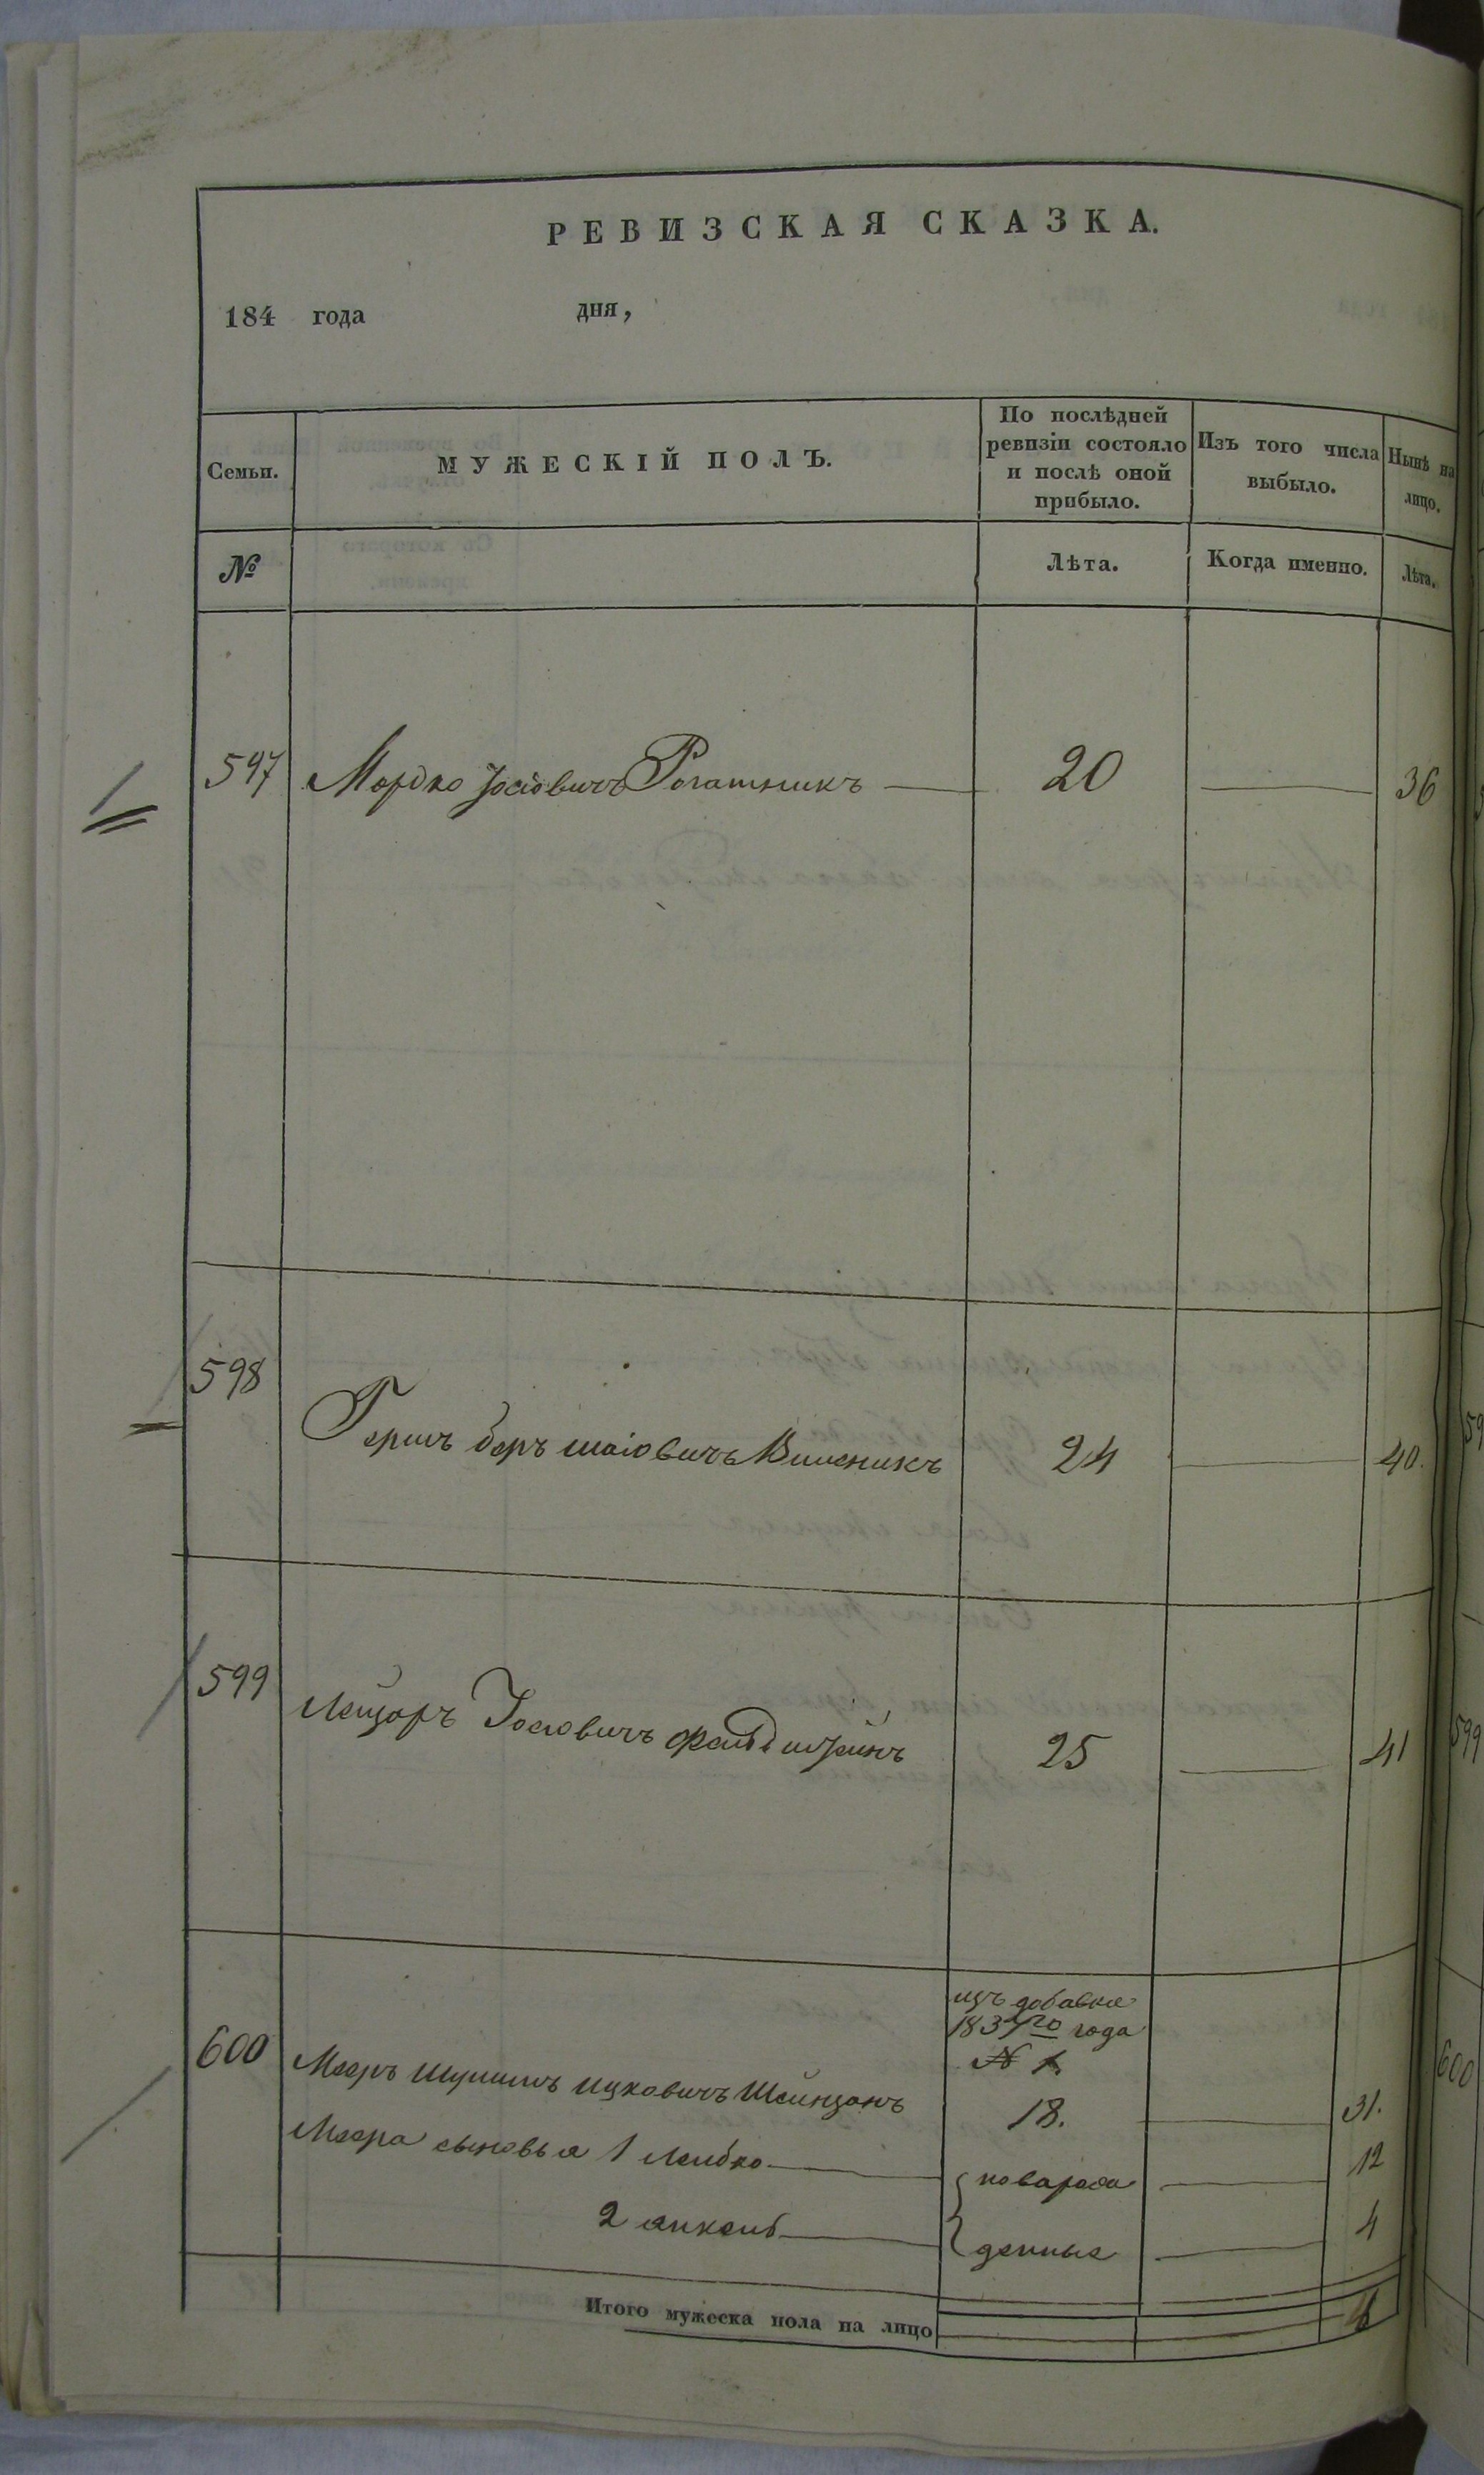 РЕВИЗСКАЯ СКАЗКА.
184 года дня,
Семьи. МУЖЕСКІЙ ПОЛЪ. По послѣдней ревизіи состояло и послѣ оной прибыло. Изъ того числа выбыло. Нынѣ на лицо.
№ Лѣта. Когда именно. Лѣта.
597 Мордко Іосіовичъ Рогатникъ 20 36
598
Гершъ беръ шаіовичъ 24 40.
599
Лейзоръ Іосіовичъ фельдштейнъ 25 41
изъ добавки
1837го года
№ 1.
600 Мееръ Шулимъ ицковичъ Шейнцонъ 18. 31.
Меера сыновья 1 Лейбко новарож 12
2 янкель денные 4
Итого мужеска пола на лицо 6